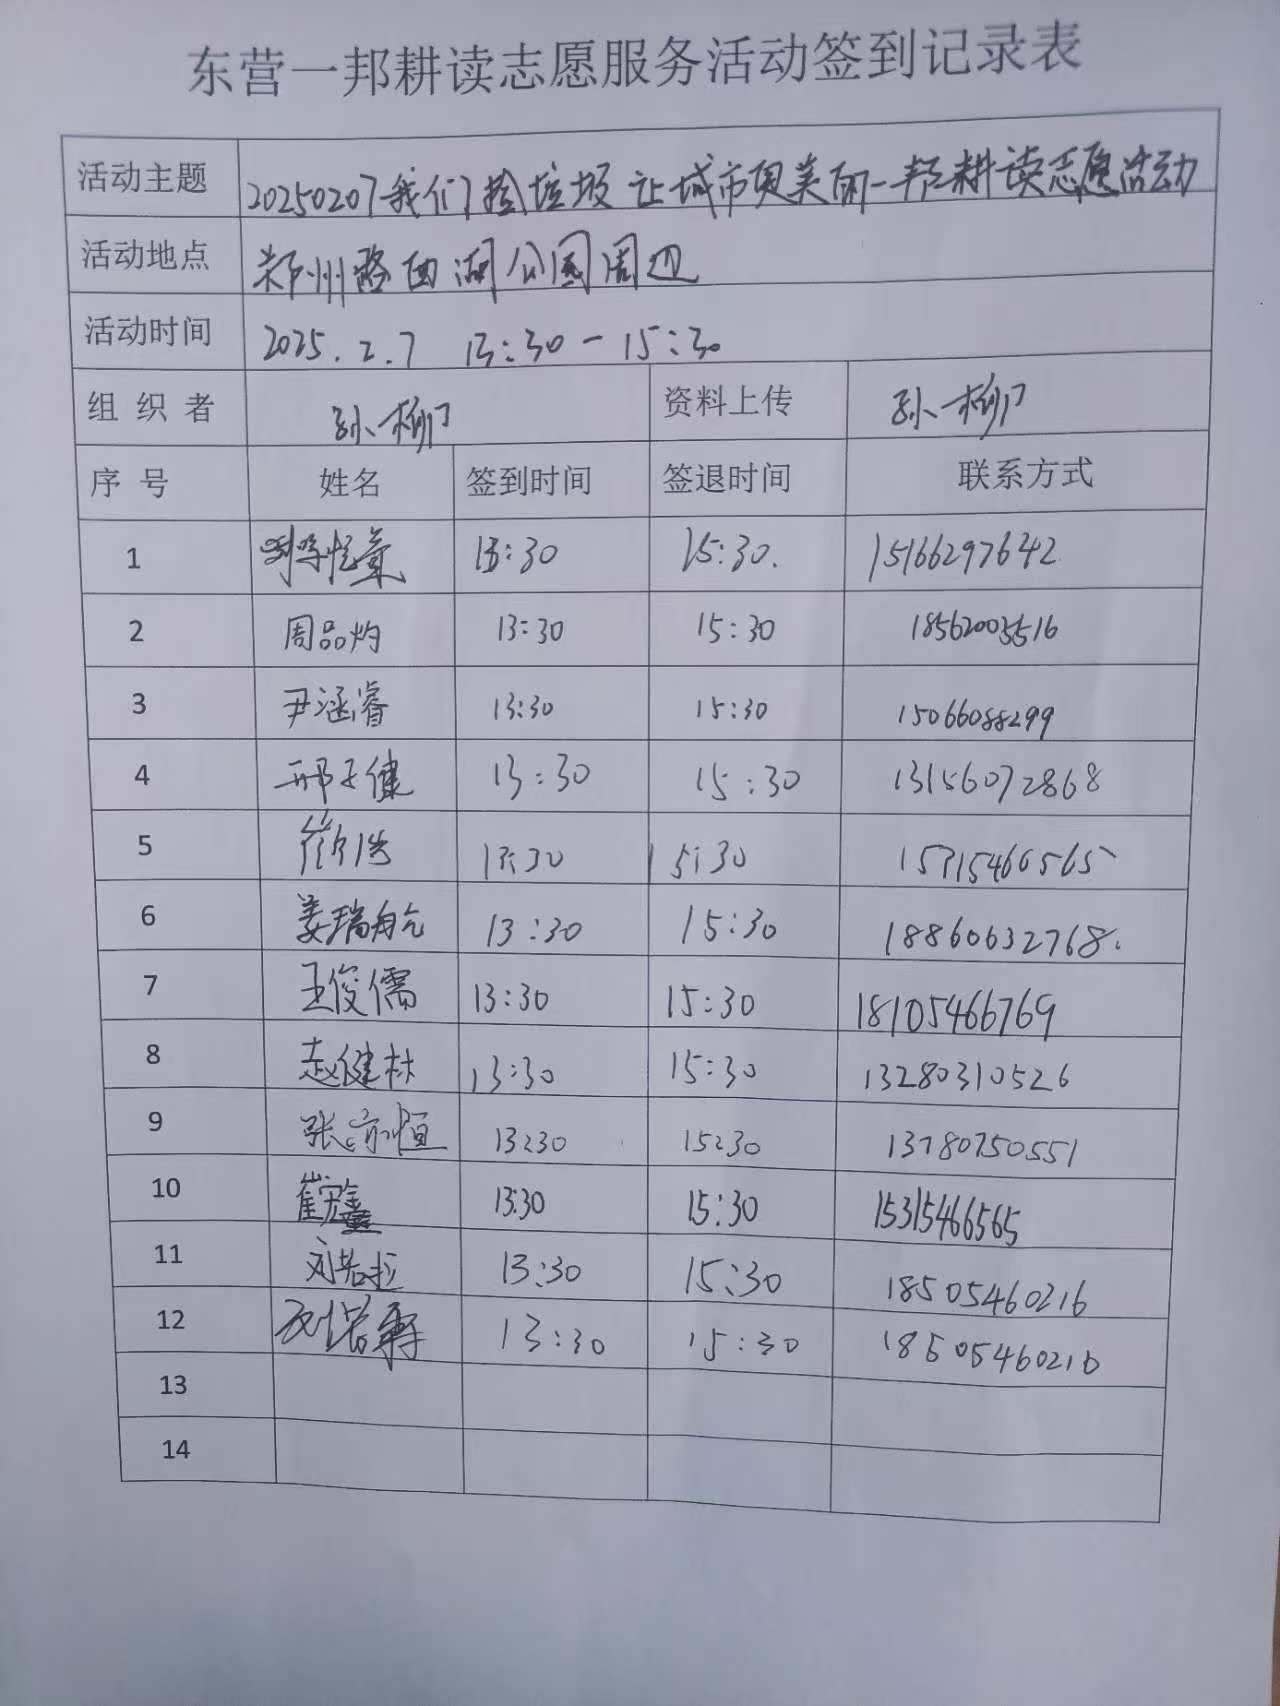 东营一邦耕读志愿服务活动签到记录表
活动主题 20250207我们捡垃圾 让城市更美丽-一邦耕读志愿活动
活动地点 郑州路西湖公园周边
活动时间 2025.2.7 13:30-15:30
组织者 孙柳 资料上传 孙柳
序号 姓名 签到时间 签退时间 联系方式
1 13:30 15:30. 15166297642
2 周品灼 13:30 15:30 18562003516
3 尹涵睿 13:30 15:30 15066088299
4 邢子健 13:30 15:30 13156072868
5 13:30 15:30 15315466565
6 姜瑞航 13:30 15:30 18860632768.
7 王俊儒 13:30 15:30 18105466769
8 赵健林 13:30 15:30 13280310526
9 张宗恒 13:30 15:30 13780750551
10 13:30 15:30 15315466565
11 刘若拉 13:30 15:30 18505460216
12 13:30 15:30 18505460216
13
14